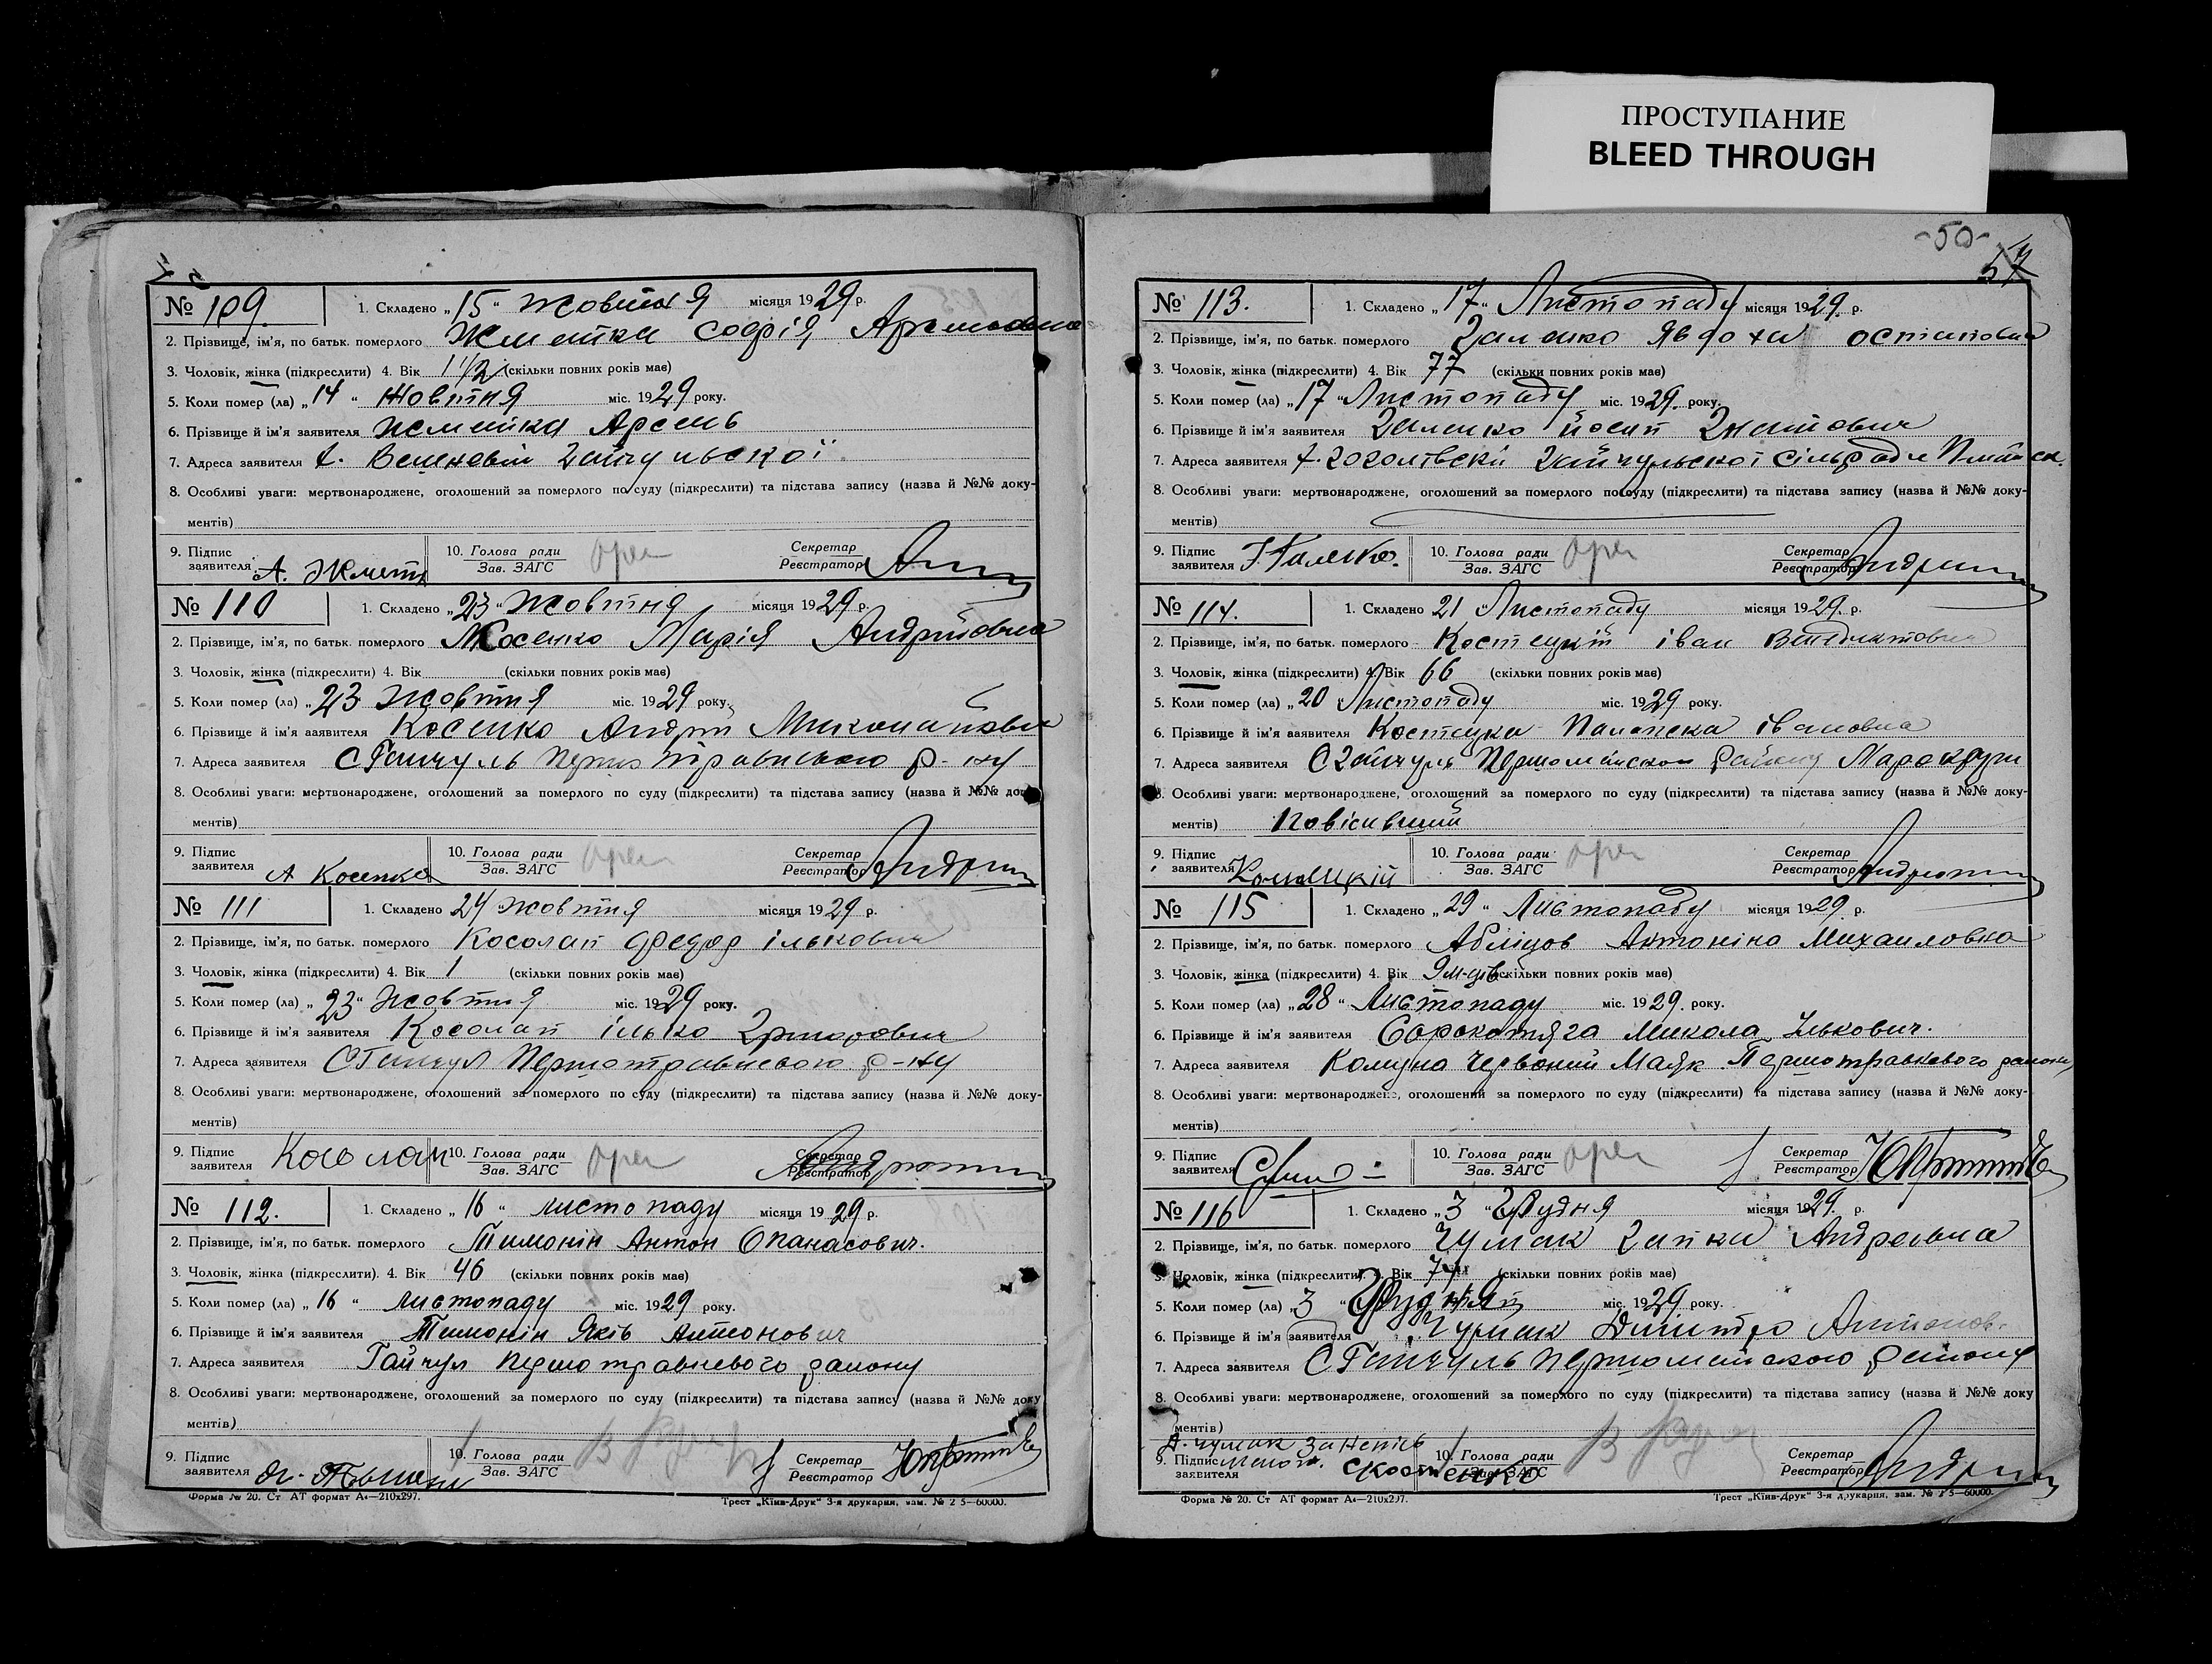 ПРОСТУПАНИЕ
BLEED THROUGH
№ 109. 1. Складено „15“ Жовтня місяця 1929 р.
2. Прізвище, ім'я, по батьк. померлого Жмайка Софія
3. Чоловік, жінка (підкреслити) 4. Вік 1 1/2 (скільки повних років має)
5. Коли помер (ла) „14“ Жовтня міс. 1929 року.
6. Прізвище й ім'я заявителя Арсень
7. Адреса заявителя х.
8. Особливі уваги: мертвонароджене, оголошений за померлого по суду (підкреслити) та підстава запису (назва й №№ доку-
ментів)
9. Підпис заявителя А. 10. Голова ради Зав. ЗАГС Секретар Реєстратор
№ 110 1. Складено „23“ Жовтня місяця 1929 р.
2. Прізвище, ім'я, по батьк. померлого Косенко Марія Андріївна
3. Чоловік, жінка (підкреслити) 4. Вік (скільки повних років має)
5. Коли помер (ла) „23 Жовтня міс. 1929 року.
6. Прізвище й ім'я заявителя Косенко Андрій
7. Адреса заявителя С Гайчуль р-ну
8. Особливі уваги: мертвонароджене, оголошений за померлого по суду (підкреслити) та підстава запису (назва й №№ доку-
ментів)
9. Підпис заявителя А Косенко 10. Голова ради Зав. ЗАГС Секретар Реєстратор
№ 111 1. Складено 24 Жовтня місяця 1929 р.
2. Прізвище, ім'я, по батьк. померлого Косолап Федор Ількович
3. Чоловік, жінка (підкреслити) 4. Вік 1 (скільки повних років має)
5. Коли помер (ла) „23“ Жовтня міс. 1929 року.
6. Прізвище й ім'я заявителя Косолап Ілько
7. Адреса заявителя С Гайчул Першотравневого р-ну
8. Особливі уваги: мертвонароджене, оголошений за померлого по суду (підкреслити) та підстава запису (назва й №№ доку-
ментів)
9. Підпис заявителя Косолап 10. Голова ради Зав. ЗАГС Секретар Реєстратор
№ 112. 1. Складено „16“ листопаду місяця 1929 р.
2. Прізвище, ім'я, по батьк. померлого Тимонін Антон Опанасович.
3. Чоловік, жінка (підкреслити). 4. Вік 46 (скільки повних років має)
5. Коли помер (ла) „16“ листопаду міс. 1929 року.
6. Прізвище й ім'я заявителя Тимонін Яків Антонович
7. Адреса заявителя Гайчул Першотравневого району
8. Особливі уваги: мертвонароджене, оголошений за померлого по суду (підкреслити) та підстава запису (назва й №№ доку
ментів)
9. Підпис заявителя 10. Голова ради Зав. ЗАГС Секретар Реєстратор
Форма № 20. Ст АТ формат А4—210х297. Трест „Київ-Друк“ 3-я друкарня, зам. № 2 5—60000.
-50-
57
№ 113. 1. Складено „17“ Листопаду місяця 1929. р.
2. Прізвище, ім'я, по батьк. померлого Явдоха Остаповна
3. Чоловік, жінка (підкреслити) 4. Вік 77 (скільки повних років має)
5. Коли помер (ла) „17“ Листопаду міс. 1929. року.
6. Прізвище й ім'я заявителя Йосип
7. Адреса заявителя х. Гайчульської сільради
8. Особливі уваги: мертвонароджене, оголошений за померлого по суду (підкреслити) та підстава запису (назва й №№ доку-
ментів)
9. Підпис заявителя 10. Голова ради Зав. ЗАГС Секретар Реєстратор
№ 114. 1. Складено 21 Листопаду місяця 1929. р.
2. Прізвище, ім'я, по батьк. померлого Костецкій Іван
3. Чоловік, жінка (підкреслити) 4. Вік 66 (скільки повних років має)
5. Коли помер (ла) „20 Листопаду міс. 1929 року.
6. Прізвище й ім'я заявителя Костецка Палажка Івановна
7. Адреса заявителя С Гайчуль Першомайского району
8. Особливі уваги: мертвонароджене, оголошений за померлого по суду (підкреслити) та підстава запису (назва й №№ доку-
ментів) Повісивший
9. Підпис заявителя 10. Голова ради Зав. ЗАГС Секретар Реєстратор
№ 115 1. Складено „29“ Листопаду місяця 1929. р.
2. Прізвище, ім'я, по батьк. померлого Абліцов Антоніна Михаиловна
3. Чоловік, жінка (підкреслити) 4. Вік 9 м-ців (скільки повних років має)
5. Коли помер (ла) „28“ Листопаду міс. 1929. року.
6. Прізвище й ім'я заявителя Сорокотяга Микола Ількович.
7. Адреса заявителя Комуна Червоний Маяк Першотравневого району
8. Особливі уваги: мертвонароджене, оголошений за померлого по суду (підкреслити) та підстава запису (назва й №№ доку-
ментів)
9. Підпис заявителя 10. Голова ради Зав. ЗАГС Секретар Реєстратор
№ 116 1. Складено „3“ Грудня місяця 1929. р.
2. Прізвище, ім'я, по батьк. померлого Чумак Гапка Андреевна
3. Чоловік, жінка (підкреслити). 4. Вік (скільки повних років має)
5. Коли помер (ла) „3“ Грудня міс. 1929 року.
6. Прізвище й ім'я заявителя Чумак Дмитро
7. Адреса заявителя С Гайчуль Першомайского району
8. Особливі уваги: мертвонароджене, оголошений за померлого по суду (підкреслити) та підстава запису (назва й №№ доку
ментів)
Д. Чумак за непісь
9. Підпис заявителя 10. Голова ради Зав. ЗАГС Секретар Реєстратор
Форма № 20. Ст АТ формат А4—210х297. Трест „Київ-Друк“ 3-я друкарня, зам. № 2 5—60000.